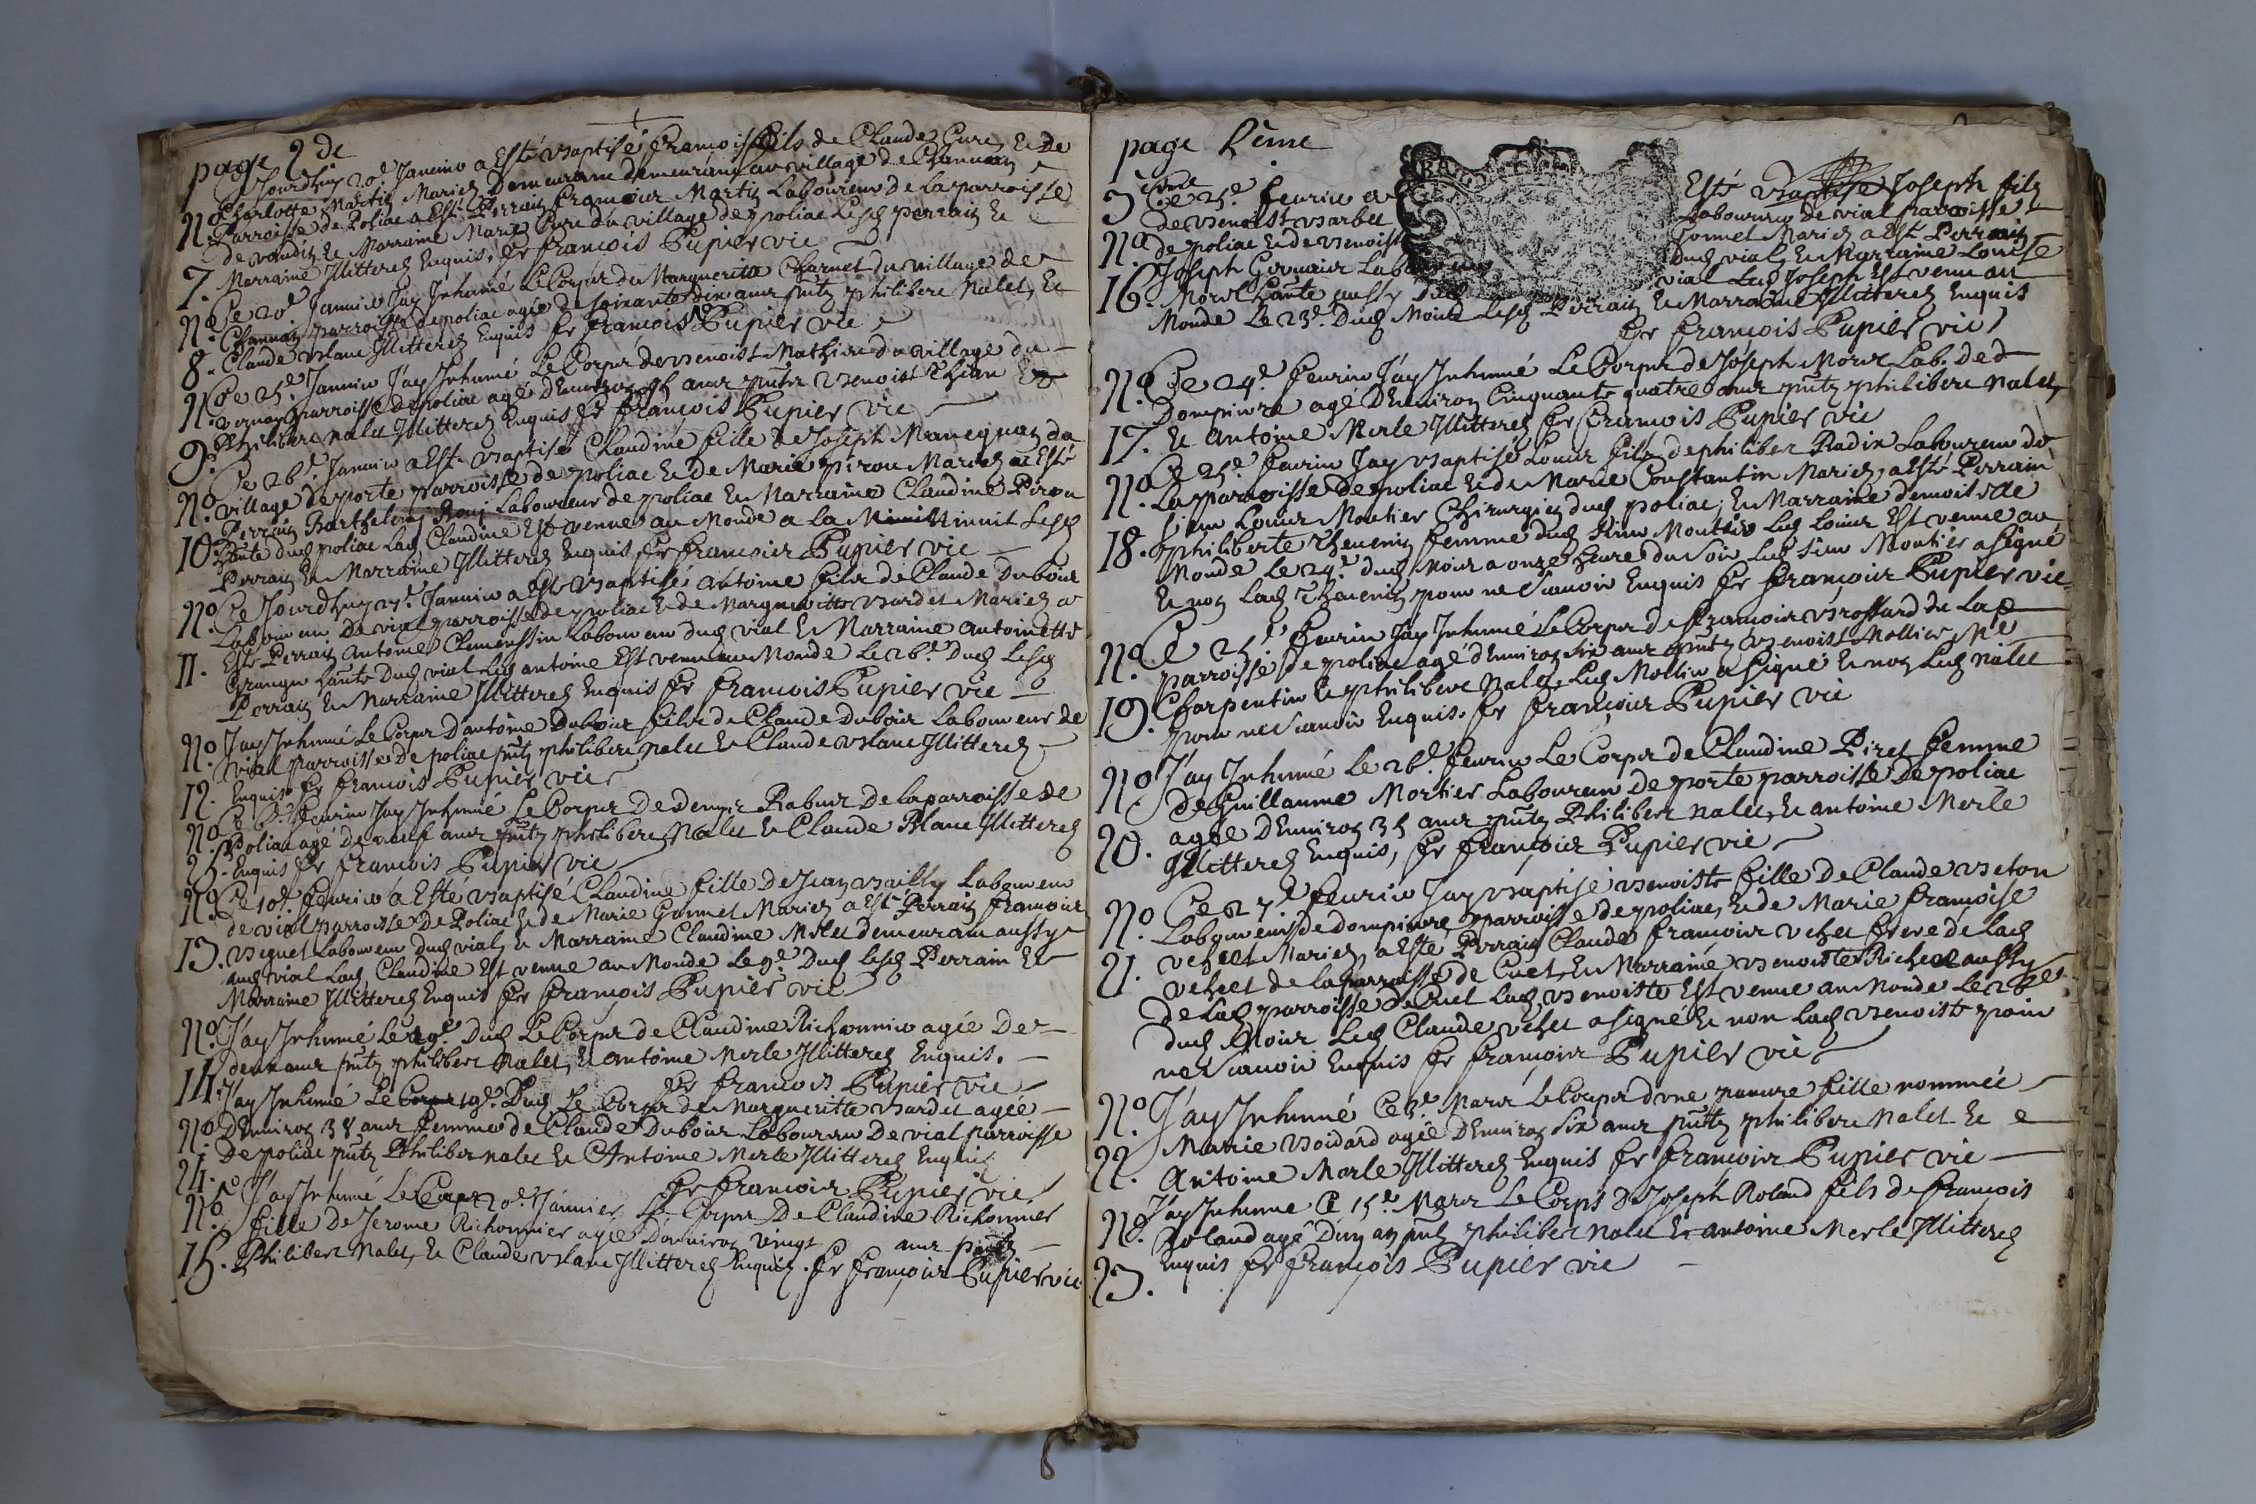 page 2de
Ce Jourdhuy 20e Janvier a Esté Baptisé françois fils de Claude Cure, Et De
Charlotte Martin Mariez Demeurans au village de Channay
No. Parroisse de Poliac a Est. Perrain francois Martin Laboureur de La parroisse
de Et Marraine Marie Cure du village de poliac Lesd perrain Et
7. Marraine Illitterez Enquis, fr françois Pupier vic
No. Ce 20e. Janvier J'ay Inhumé Le Corps de Marguerite Charnet du village de
Channay parroisse de poliac agée de soixante dix ans pntz philibert Nalet, Et
8. Claude Blanc Illitterez Enquis fr françois Pupier vic
No. Ce 25e. Janvier J'ay Inhumé Le Corps de Benoist Mathieu du village du
parroisse de poliac agé D'Environ ans pntz Benoist Et
9. Philibert nalet Illitterez Enquis fr françois Pupier vic
Ce 26e. Janvier a Est. Baptisé Claudine fille de Joseph du
No. village de porte parroisse de poliac Et de Marie pirou Mariez a Esté
Perrain Barthelemi Laboureur de poliac Et Marraine Claudine Pirou
10. dud poliac Lad Claudine Est venue au Monde a La Minuit Lesd
Perrain Et Marraine Illitterez Enquis fr françois Pupier vic
No. Ce Jourdhuy 27e. Janvier a Est. Baptisé Antoine fils de Claude Dubois
Laboureur De vial parroisse de poliac Et de Marguerite Bardet Mariez a
11. Esté Perrain Antoine Laboureur dud vial Et Marraine Antoinette
Dud vial Led antoine Est venu au Monde Le 26e. Dud Lesd
Perrain Et Marraine Illitterez Enquis fr françois Pupier vic
No. J'ay Inhumé Le Corps D'antoine Dubois fils de Claude Dubois Laboureur de
vial parroisse De poliac pntz philibert nalet Et Claude Blanc Illitterez
12. Enquis fr françois Pupier vic
No. fevrier J'ay Inhumé Le Corps De Rabur De La parroisse de
Poliac agé De neuf ans pntz philibert Nalet Et Claude Blanc Illitterez
25. Enquis fr françois Pupier vic
No. Ce 10e. fevrier a Esté Baptisé Claudine fille De Jean Bailly Laboureur
de vial parroisse De Poliac Et de Marie Gonnet Mariez a Est. Perrain francois
13. Laboureur Dud vial, Et Marraine Claudine demeurant aussy
aud vial Lad Claudine Est venue au Monde Le 9e. Dud lesd Perrain Et
Marraine Illitterez Enquis fr françois Pupier vic
No. J'ay Inhumé Le 19e. Dud Le Corps de Claudine Richonnier agée De
deux ans pntz philibert Nalet, Et antoine Merle Illitterez Enquis.
14. fr françois Pupier vic
J'ay Inhumé Le Corps 19e. Dud Le Corps de Margueritte Bardet agée
No. D'Environ 38 ans femme de Claude Dubois Laboureur De vial parroisse
De poliac pntz Philibert nalet Et Antoine Merle Illitterez Enquis
24. fr françois Pupier vic
No. J'ay Inhumé Le Corps 20e. Janvier Le Corps De Claudine Richonnier
fille De Jerome Richonnier agée D'environ vingt ans pntz
15. Philibert Nalet, Et Claude Blanc Illitterez Enquis. fr françois Pupier vic
page 2ème
3eme
Ce 25e. fevrier a Esté Baptisé Joseph fils
de Benoist Barbet Laboureur de vial parroisse
No. de poliac Et de Benoiste Gonnet Mariez a Est. Perrain
Joseph Laboureur dud vial, Et Marraine Louise
16. aussy vial Led Joseph Est venu au
Monde Le 23e. Dud Mois Lesd Perrain Et Marraine Illitterez Enquis
fr françois Pupier vic
No. Ce 24e. fevrier J'ay Inhumé Le Corps de Joseph Morel Lab. de
Dompierre agé D'Environ Cinquante quatre ans pntz philibert nalet,
17. Et Antoine Merle Illitterez fr françois Pupier vic
Ce 25e. fevrier J'ay Baptisé Louis fils de philibert Radix Laboureur de
No. La parroisse De poliac Et de Marie Constantin Mariez, a Esté Perrain
sieur Louis Moutier Chirurgien dud poliac, Et Marraine demoiselle
18. philiberte Thevenin femme dud sieur Moutier Led Louis Est venu au
Monde Le 24e. dud Mois a onze heure du soir Led sieur Moutier a signé
Et non Lad Thevenin pour ne sçavoir Enquis fr françois Pupier vic
No. Ce 25e. fevrier J'ay Inhumé Le Corps de françois Brossard de La
parroisse de poliac agé d'Environ six ans pntz Benoist Mollier Me
19. Charpentier Et philibert Nalet, Led Mollier a signé Et non Led nalet
pour ne sçavoir Enquis. fr françois Pupier vic
No. J'ay Inhumé Le 26e. fevrier Le Corps de Claudine Piret femme
De Guillaume Mortier Laboureur de porte parroisse De poliac
agée D'Environ 35 ans pntz Philibert nalet, Et antoine Merle
20. Illitterez Enquis, fr françois Pupier vic
No. Ce 27e. fevrier J'ay Baptisé Benoiste fille De Claude Beton
Laboureur de dompierre parroisse de poliac, Et de Marie françoise
21. vehet Mariez, a Esté Perrain Claude francois vehet frere de Lad
vehet de La parroisse de Cuet, Et Marraine Benoiste aussy
De Lad parroisse de Cuet Lad Benoiste Est venue au Monde Le 26e.
Dud Mois Led Claude vehet a signé Et non Lad Benoiste pour
ne sçavoir Enquis fr françois Pupier vic
No. J'ay Inhumé Ce 3e. Mars Le Corps d'une pauvre fille nommée
Marie Boidard agée D'Environ six ans pntz philibert Nalet Et
22. Antoine Merle Illitterez Enquis fr françois Pupier vic
No. J'ay Inhumé Ce 15e. Mars Le Corps De Joseph Roland fils de françois
Roland agé D'un an pntz philibert Nalet Et antoine Merle Illitterez
23. Enquis fr françois Pupier vic